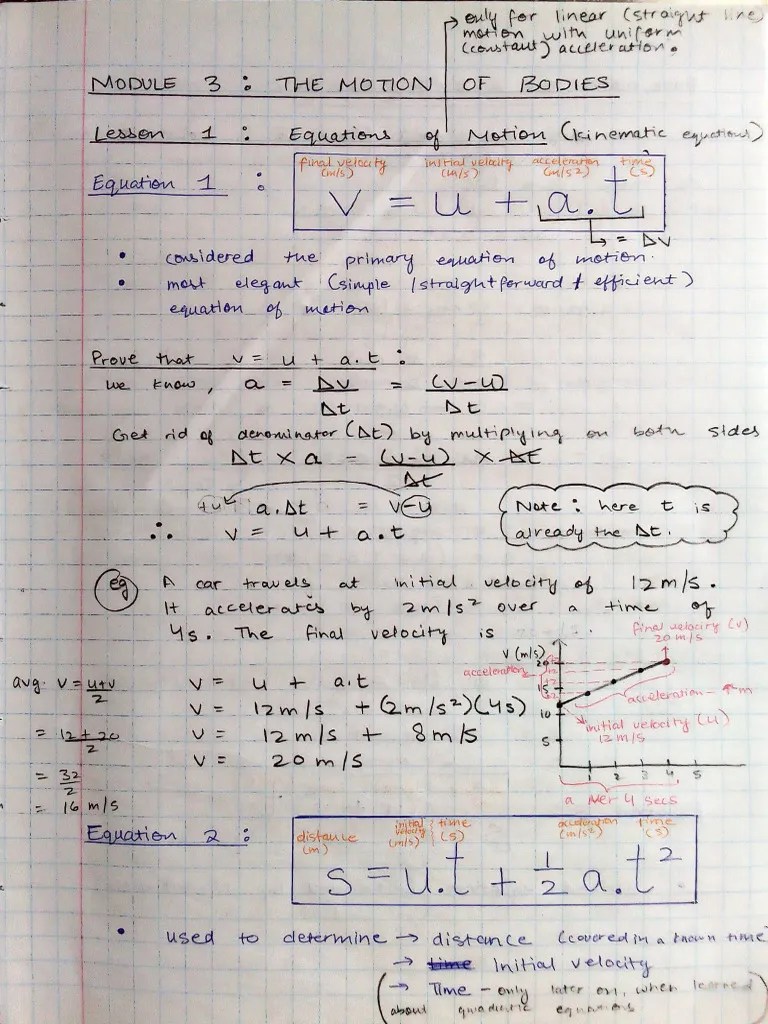 only for linear (straight line)
motion with uniform
(constant) acceleration.
MODULE 3 : THE MOTION OF BODIES
Lesson 1 : Equations of Motion (kinematic equations)
final velocity (m/s) initial velocity (m/s) acceleration (m/s²) time (s)
Equation 1 : v = u + a.t
= Δv
• considered the primary equation of motion.
• most elegant (simple / straightforward + efficient)
equation of motion
Prove that v = u + a.t :
we know, a = Δv/Δt = (v-u)/Δt
Get rid of denominator (Δt) by multiplying on both sides
Δt × a = (v-u)/Δt × Δt
+u a.Δt = v-u
∴ v = u + a.t
Note : here t is
already the Δt.
eg A car travels at initial velocity of 12m/s.
It accelerates by 2m/s² over a time of
4s. The final velocity is
v = u + a.t
v = 12m/s + (2m/s²)(4s)
v = 12m/s + 8m/s
v = 20m/s
avg. v = u+v/2
= 12+20/2
= 32/2
= 16 m/s
final velocity (v)
20 m/s
v (m/s)
20
15
10
5
acceleration
acceleration - m
initial velocity (u)
12 m/s
1 2 3 4 5
a over 4 secs
distance (m) initial velocity (m/s) time (s) acceleration (m/s²) time (s)
Equation 2 : s = u.t + 1/2 a.t²
• used to determine → distance (covered in a known time
→ time Initial velocity
(→ Time - only later on, when learned
about quadratic equations